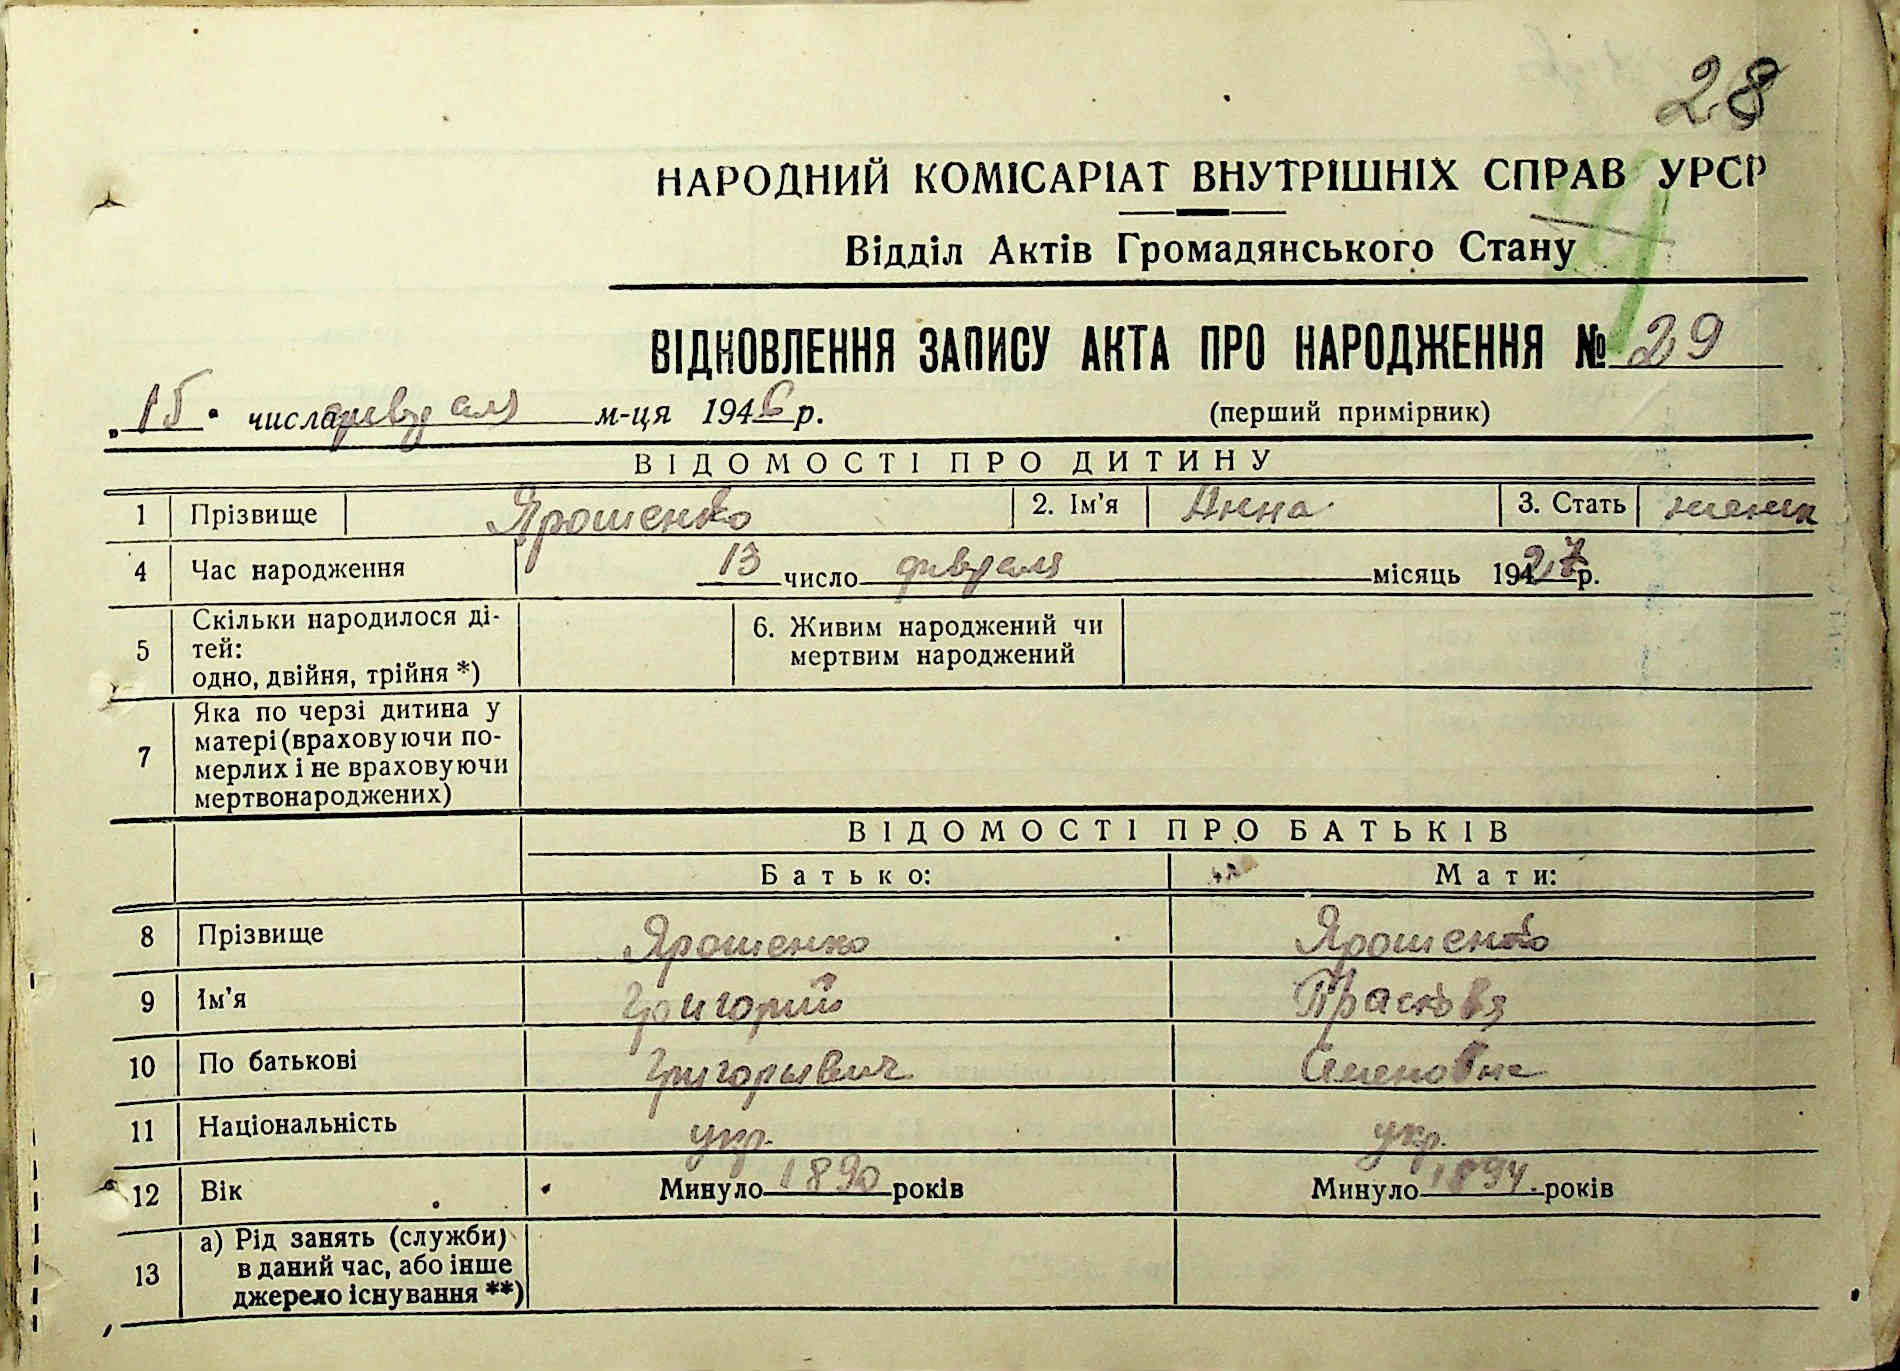 28
НАРОДНИЙ КОМІСАРІАТ ВНУТРІШНІХ СПРАВ УРСР
Відділ Актів Громадянського Стану
ВІДНОВЛЕННЯ ЗАПИСУ АКТА ПРО НАРОДЖЕННЯ № 29
„15" числа февраля м-ця 1946 р. (перший примірник)
ВІДОМОСТІ ПРО ДИТИНУ
1 Прізвище Ярошенко 2. Ім'я Анна 3. Стать женск
4 Час народження 13 число февраля місяць 1927 р.
5 Скільки народилося ді-
тей:
одно, двійня, трійня *)
6. Живим народжений чи
мертвим народжений
7 Яка по черзі дитина у
матері (враховуючи по-
мерлих і не враховуючи
мертвонароджених)
ВІДОМОСТІ ПРО БАТЬКІВ
Батько: Мати:
8 Прізвище Ярошенко Ярошенко
9 Ім'я Григорий Прасковя
10 По батькові Григорьевич Семеновна
11 Національність укр. укр.
12 Вік Минуло 1890 років Минуло 1894 років
13 а) Рід занять (служби)
в даний час, або інше
джерело існування **)